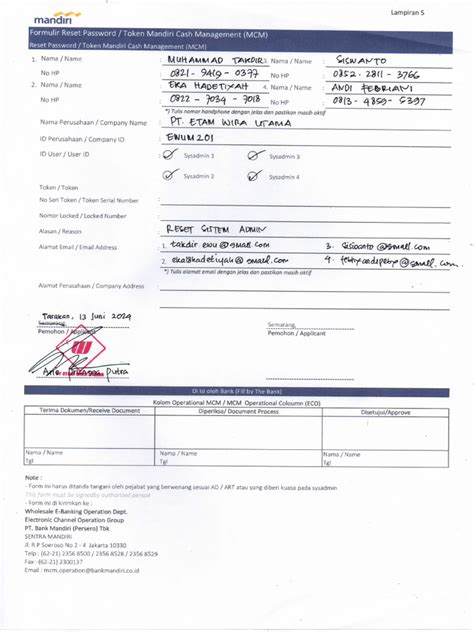 mandiri
Lampiran 5
Formulir Reset Password / Token Mandiri Cash Management (MCM)
Reset Password / Token Mandiri Cash Management (MCM)
1. Nama / Name MUHAMMAD TAKDIR 3. Nama / Name SISWANTO
No HP 0821 - 9419 - 0377 No HP 0852 - 2811 - 3766
2. Nama / Name EKA HADETIYAH 4. Nama / Name ANDI FEBRIANI
No HP 0822 - 7034 - 7018 No HP 0813 - 4859 - 5397
*) Tulis nomor handphone dengan jelas dan pastikan masih aktif
Nama Perusahaan / Company Name PT. ETAM WIRA UTAMA
ID Perusahaan / Company ID EWUM201
ID User / User ID Sysadmin 1 Sysadmin 3
Sysadmin 2 Sysadmin 4
Token / Token
No Seri Token / Token Serial Number
Nomor Locked / Locked Number
Alasan / Reason RESET SISTEM ADMIN
Alamat Email / Email Address 1. takdir.ewu@gmail.com 3. @gmail.com
2. @gmail.com 4. @gmail.com
*) Tulis alamat email dengan jelas dan pastikan masih aktif
Alamat Perusahaan / Company Address
Tarakan, 13 Juni 2024
Semarang, Semarang,
Pemohon / Applicant Pemohon / Applicant
Putra
Di isi oleh Bank (Fill by The Bank)
Kolom Operational MCM / MCM Operational Coloumn (ECO)
Terima Dokumen/Receive Document Diperiksa/ Document Process Disetujui/Approve
Nama / Name Nama / Name Nama / Name
Tgl Tgl Tgl
Note :
- Form ini harus ditanda tangani oleh pejabat yang berwenang sesuai AD / ART atau yang diberi kuasa pada sysadmin
This form must be signedby authorized person
- Form ini di kirimkan ke :
Wholesale E-Banking Operation Dept.
Electronic Channel Operation Group
PT. Bank Mandiri (Persero) Tbk
SENTRA MANDIRI
Jl. R.P Soeroso No 2 - 4 Jakarta 10330
Telp : (62-21) 2356 8500 / 2356 8528 / 2356 8529
Fax : (62-21) 2300137
Email : mcm.operation@bankmandiri.co.id